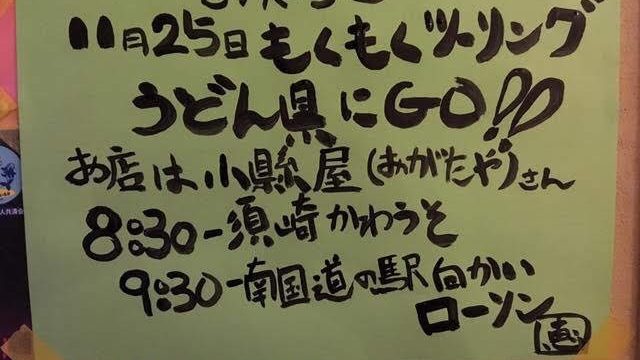 11月25日もくもくツーリング
うどん県にGO!!
お店は小縣屋(おがたや)さん
8:30-須崎かわうそ
9:30-南国道の駅向かい
ローソン